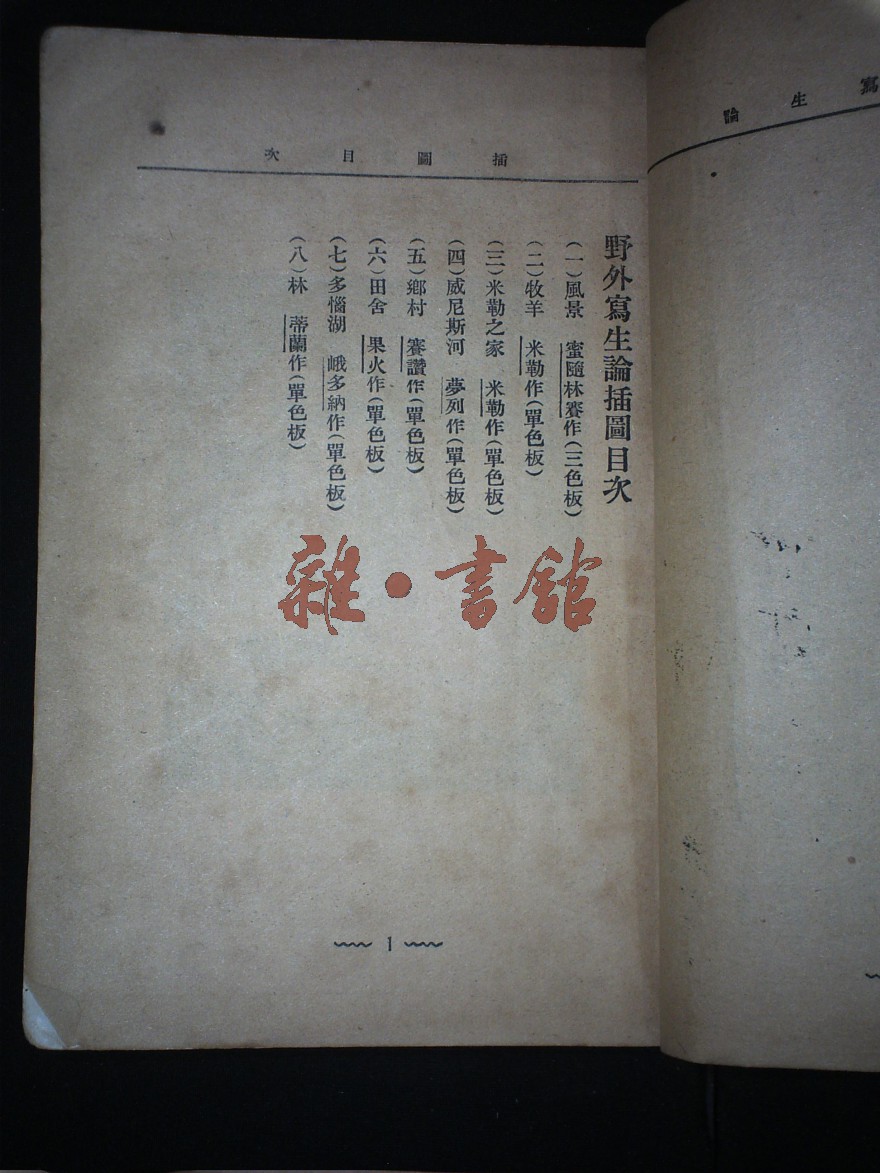 插圖目次
野外寫生論插圖目次
(一)風景 蜜隨林賽作(三色板)
(二)牧羊 米勒作(單色板)
(三)米勒之家 米勒作(單色板)
(四)威尼斯河 夢列作(單色板)
(五)鄉村 賽讚作(單色板)
(六)田舍 果火作(單色板)
(七)多惱湖 峨多納作(單色板)
(八)林 蒂蘭作(單色板)
1
寫生論
雜·書館